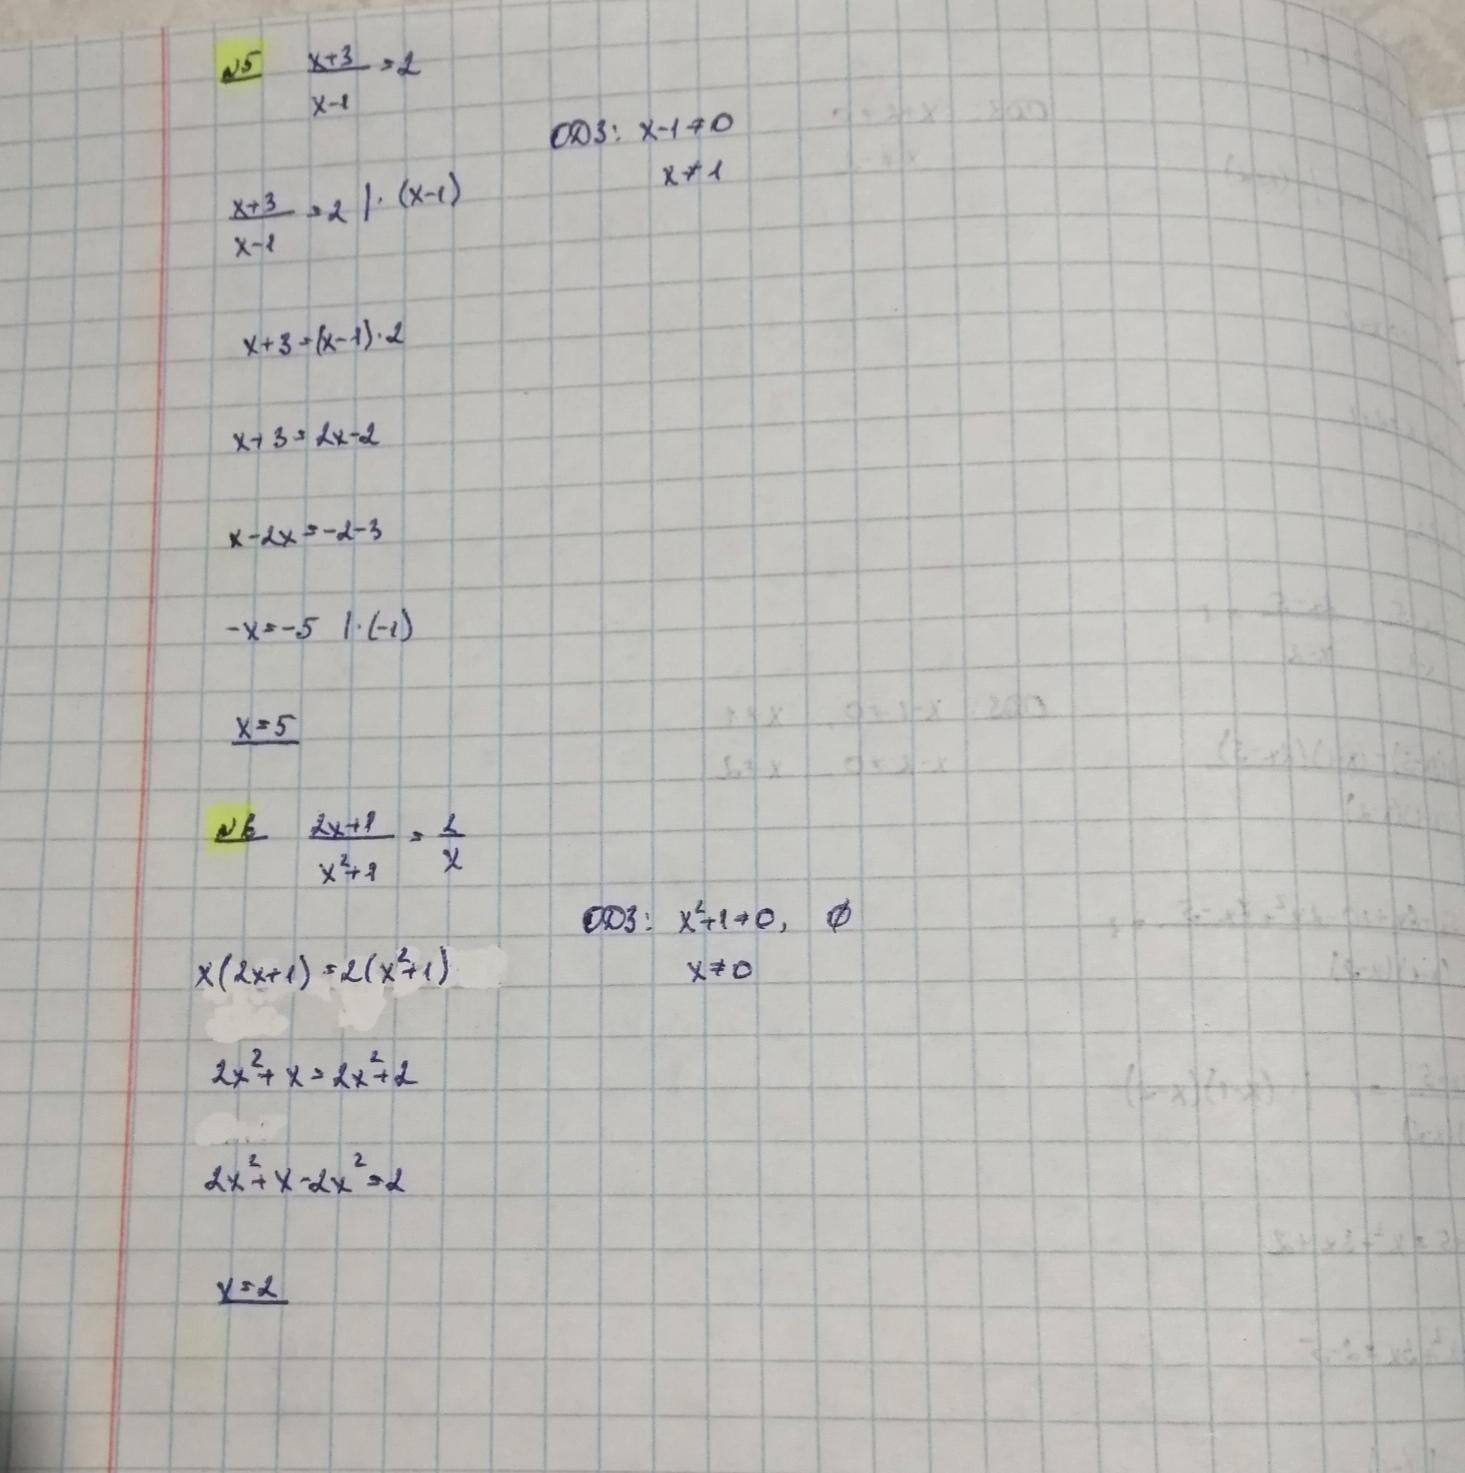 №5 x+3/x-1 = 2
ОДЗ: x-1≠0
x≠1
x+3/x-1 = 2 |·(x-1)
x+3=(x-1)·2
x+3=2x-2
x-2x=-2-3
-x=-5 |·(-1)
x=5
№6 2x+1/x²+1 = 2/x
ОДЗ: x²+1≠0, ∅
x≠0
x(2x+1)=2(x²+1)
2x²+x=2x²+2
2x²+x-2x²=2
x=2